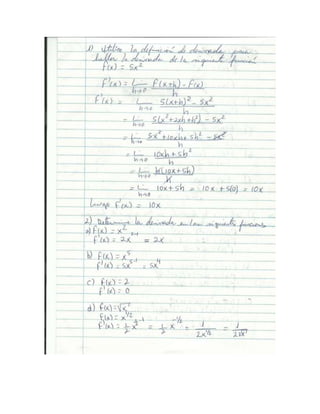 1) Utilice la definición de derivada para
hallar la derivada de la siguiente función
f(x) = 5x²
f'(x) = Lim h→0 f(x+h) - f(x) / h
f'(x) = Lim h→0 5(x+h)² - 5x² / h
= Lim h→0 5(x²+2xh+h²) - 5x² / h
= Lim h→0 5x²+10xh+5h² - 5x² / h
= Lim h→0 10xh+5h² / h
= Lim h→0 h(10x+5h) / h
= Lim h→0 10x+5h = 10x+5(0) = 10x
Luego f'(x) = 10x
2) Determine la derivada en las siguientes funciones
a) f(x) = x²
f'(x) = 2x²⁻¹ = 2x
b) f(x) = x⁵
f'(x) = 5x⁵⁻¹ = 5x⁴
c) f(x) = 2
f'(x) = 0
d) f(x) = √x
f(x) = x^1/2
f'(x) = 1/2 x^1/2-1 = 1/2 x^-1/2 = 1/2x^1/2 = 1/2√x